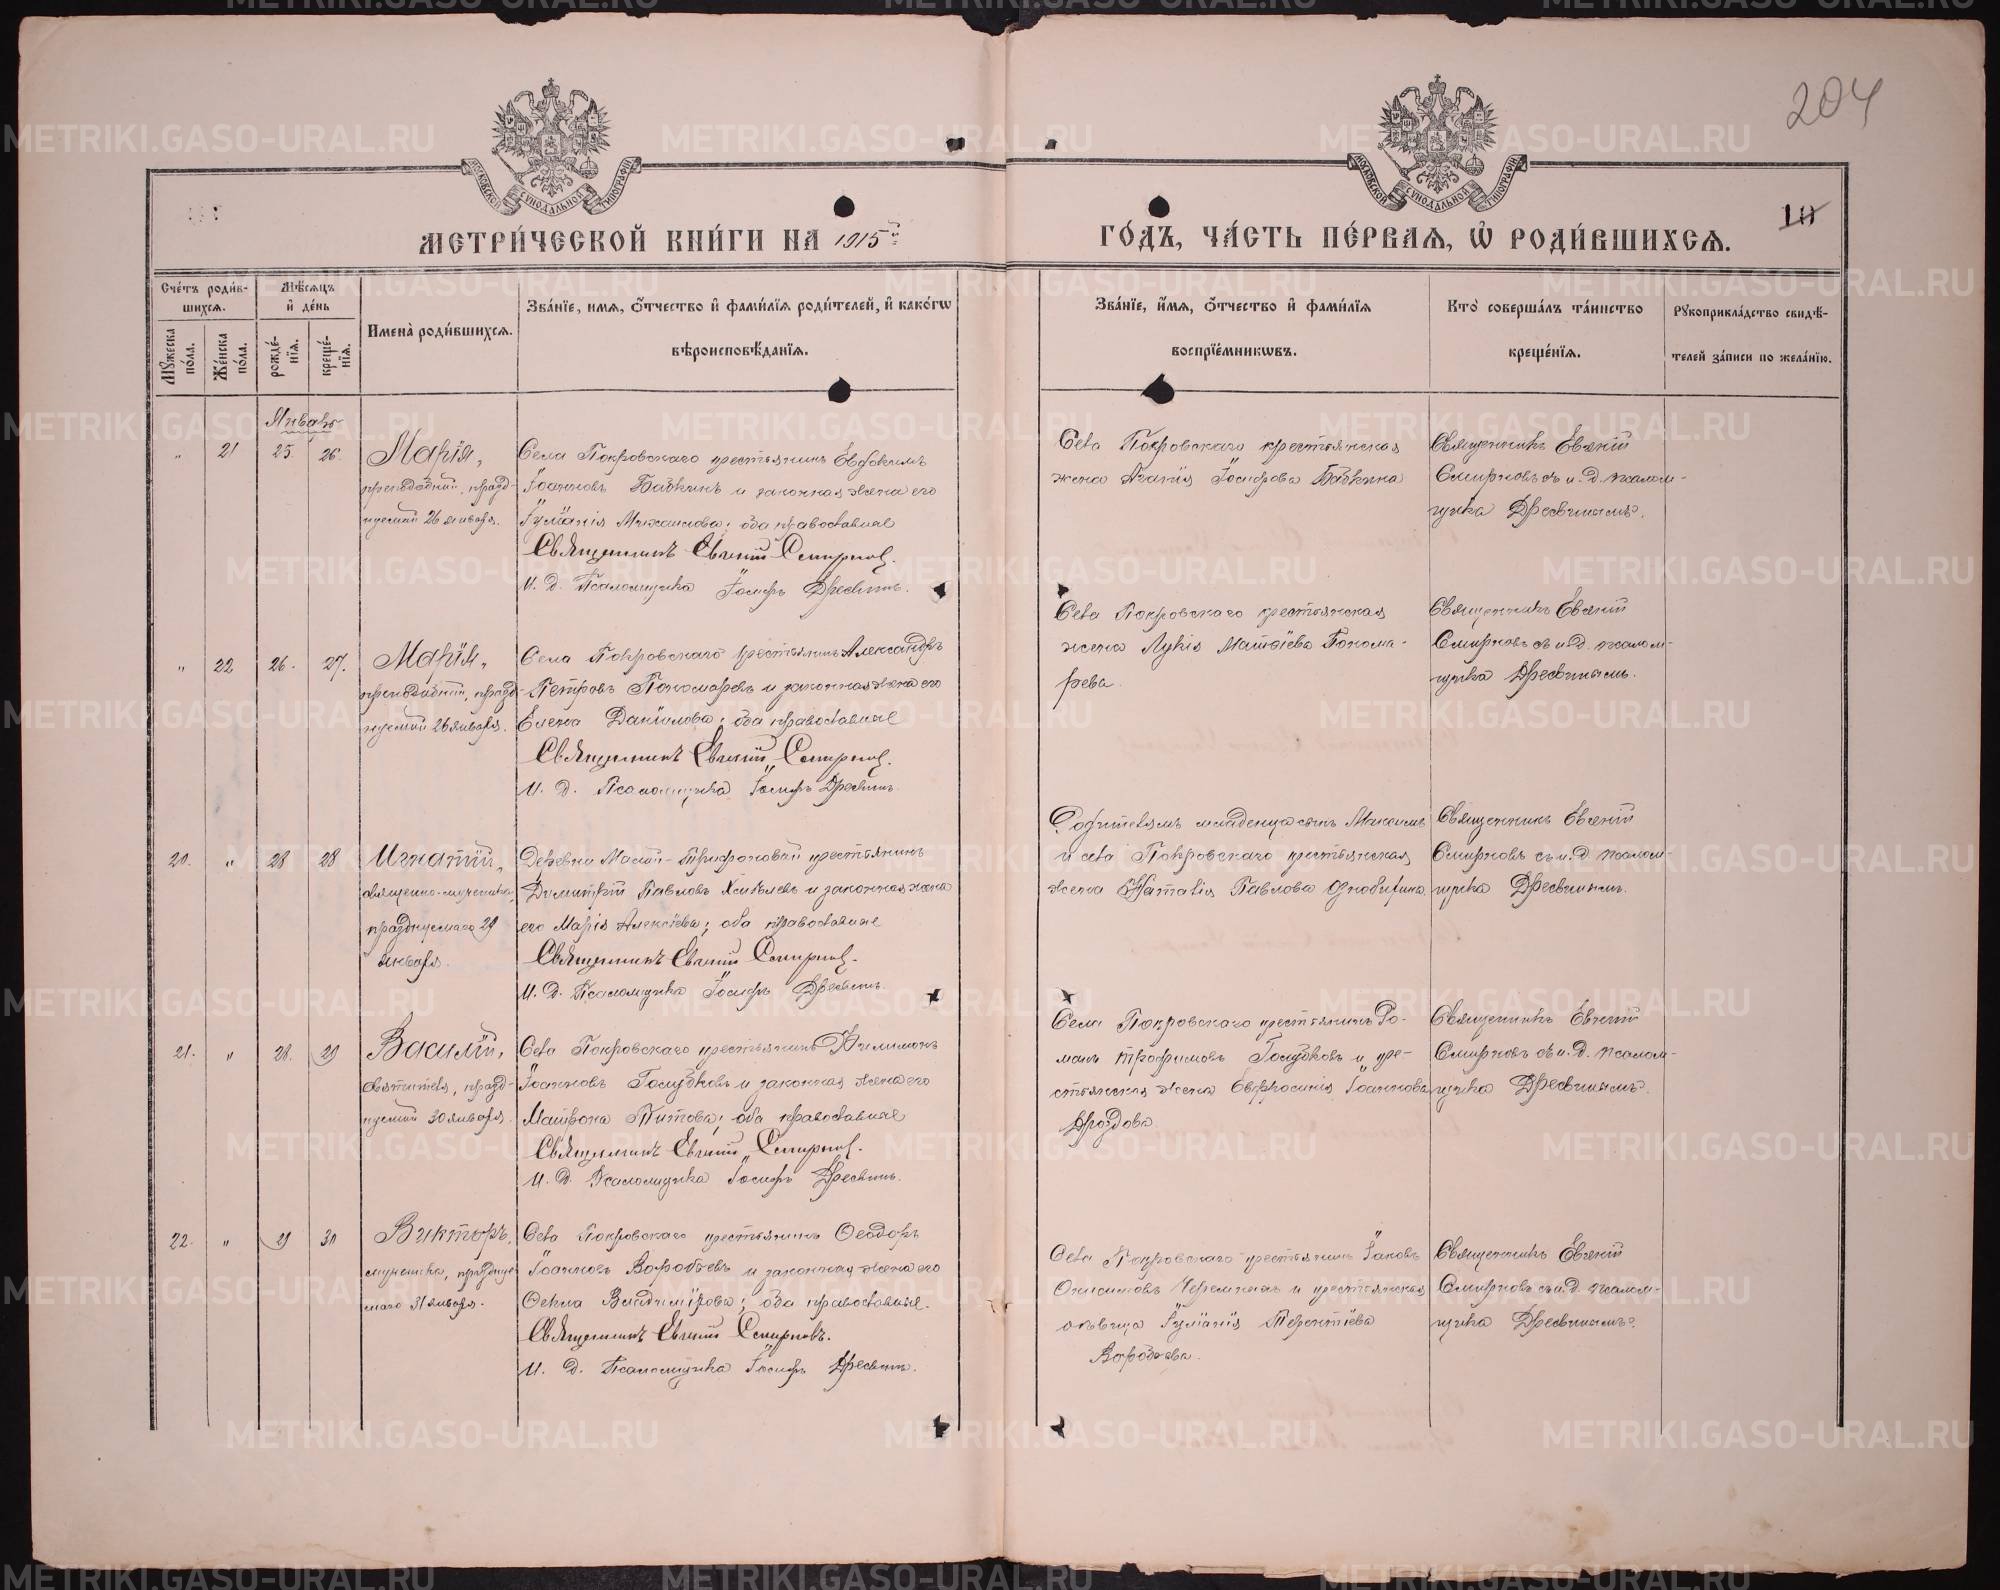 204
10
МОСКОВСКОЙ СѴНОДАЛЬНОЙ ТИПОГРАФІИ
МОСКОВСКОЙ СѴНОДАЛЬНОЙ ТИПОГРАФІИ
МЕТРИ́ЧЕСКОЙ КНИ́ГИ НА 1915й
ГО́ДЪ, ЧА́СТЬ ПЕ́РВАЯ, Ѡ РОДИ́ВШИХСЯ.
Сче́тъ роди́в-
шихся.
Мꙋжеска по́ла.
Же́нска по́ла.
Мѣ́сяцъ и де́нь
рожде́-нїѧ.
креще́-нїѧ.
Имена̀ роди́вшихся.
Зва́нїе, имя, о́тчество и фами́лїя роди́телей, и како́гѡ
вѣроисповѣ́данїя.
Зва́нїе, и́мя, о́тчество и фами́лїя
воспрїе́мникѡвъ.
Кто̀ соверша́лъ та́инство
креще́нїя.
Рꙋкоприкла́дство свидѣ́-
телей за́писи по жела́нїю.
Январь
„ 21 25. 26. Марія,
преподобный, празд-
нуемый 26 января.
Села Покровскаго крестьянинъ Евдокимъ
Іоанновъ Бабкинъ и законная жена его
Іуліанія Михаилова; оба православные
Священникъ Евгеній Смирновъ.
И. д. Псаломщика Іосифъ Дресвинъ.
Села Покровскаго крестьянская
жена Агапія Іосифова Бабкина
Священникъ Евгеній
Смирновъ съ и. д. псалом-
щика Дресвинымъ.
„ 22 26. 27. Марія,
преподобный, празд-
нуемый 26 января.
Села Покровскаго крестьянинъ Александръ
Петровъ Пономаревъ и законная жена его
Елена Даніилова; оба православные
Священникъ Евгеній Смирновъ.
И. д. Псаломщика Іосифъ Дресвинъ.
Села Покровскаго крестьянская
жена Лукія Матѳіева Понома-
рева.
Священникъ Евгеній
Смирновъ съ и. д. псалом-
щика Дресвинымъ.
20. „ 28 28 Игнатій,
священно-мученика,
празднуемаго 29
января.
Деревни Малой-Трифоновой крестьянинъ
Димитрій Павловъ и законная жена
его Марія Алексіева; оба православные
Священникъ Евгеній Смирновъ.
И. д. Псаломщика Іосифъ Дресвинъ.
младенца сынъ Максимъ
и села Покровскаго крестьянская
жена Наталія Павлова
Священникъ Евгеній
Смирновъ съ и. д. псалом-
щика Дресвинымъ.
21. „ 28. 29 Василій,
святителя, празд-
нуемый 30 января.
Села Покровскаго крестьянинъ Филимонъ
Іоанновъ Голубковъ и законная жена его
Матрона Титова; оба православные
Священникъ Евгеній Смирновъ.
И. д. Псаломщика Іосифъ Дресвинъ.
Села Покровскаго крестьянинъ Ро-
манъ Трофимовъ Голубковъ и кре-
стьянская жена Евфросинія Іоаннова
Дроздова
Священникъ Евгеній
Смирновъ съ и. д. псалом-
щика Дресвинымъ.
22. „ 29 30 Викторъ,
мученика, праздуе-
маго 31 января.
Села Покровскаго крестьянинъ Ѳеодоръ
Іоанновъ Воробьевъ и законная жена его
Ѳекла Владимірова; оба православные.
Священникъ Евгеній Смирновъ.
И. д. Псаломщика Іосифъ Дресвинъ.
Села Покровскаго крестьянинъ Іаковъ
Онисимовъ и крестьянская
дѣвица Іуліанія Терентіева
Воробьева.
Священникъ Евгеній
Смирновъ съ и. д. псалом-
щика Дресвинымъ.
METRIKI.GASO-URAL.RU